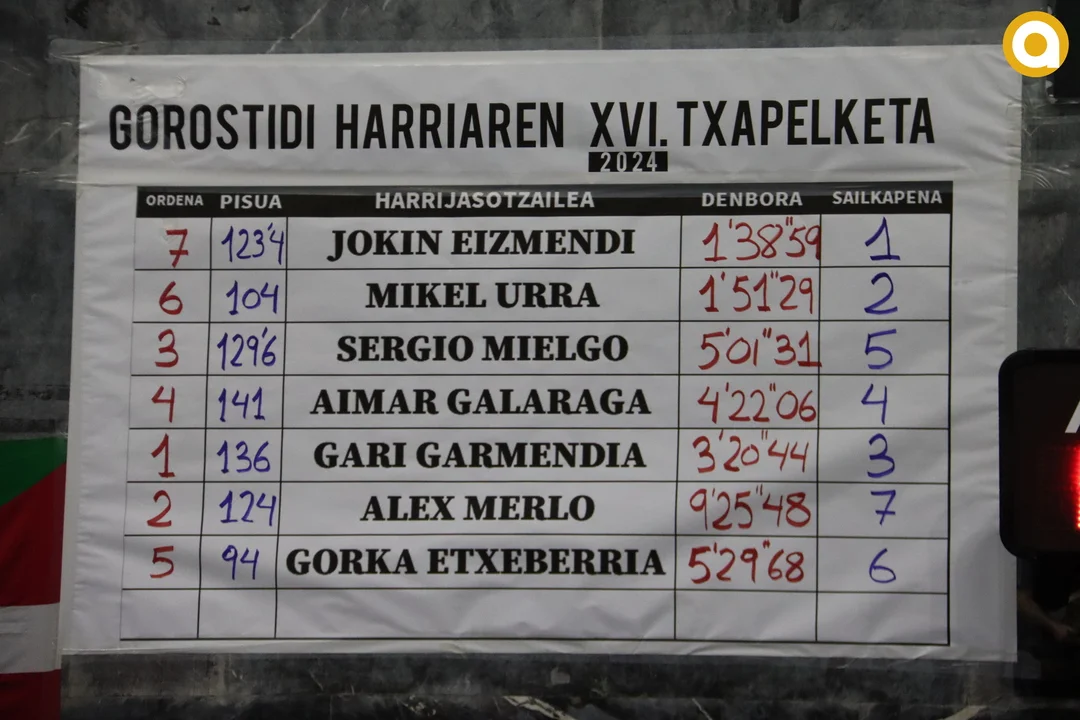 GOROSTIDI HARRIAREN XVI. TXAPELKETA
2024
ORDENA PISUA HARRIJASOTZAILEA DENBORA SAILKAPENA
7 123'4 JOKIN EIZMENDI 1'38"59 1
6 104 MIKEL URRA 1'51"29 2
3 129'6 SERGIO MIELGO 5'01"31 5
4 141 AIMAR GALARAGA 4'22"06 4
1 136 GARI GARMENDIA 3'20"44 3
2 124 ALEX MERLO 9'25"48 7
5 94 GORKA ETXEBERRIA 5'29"68 6